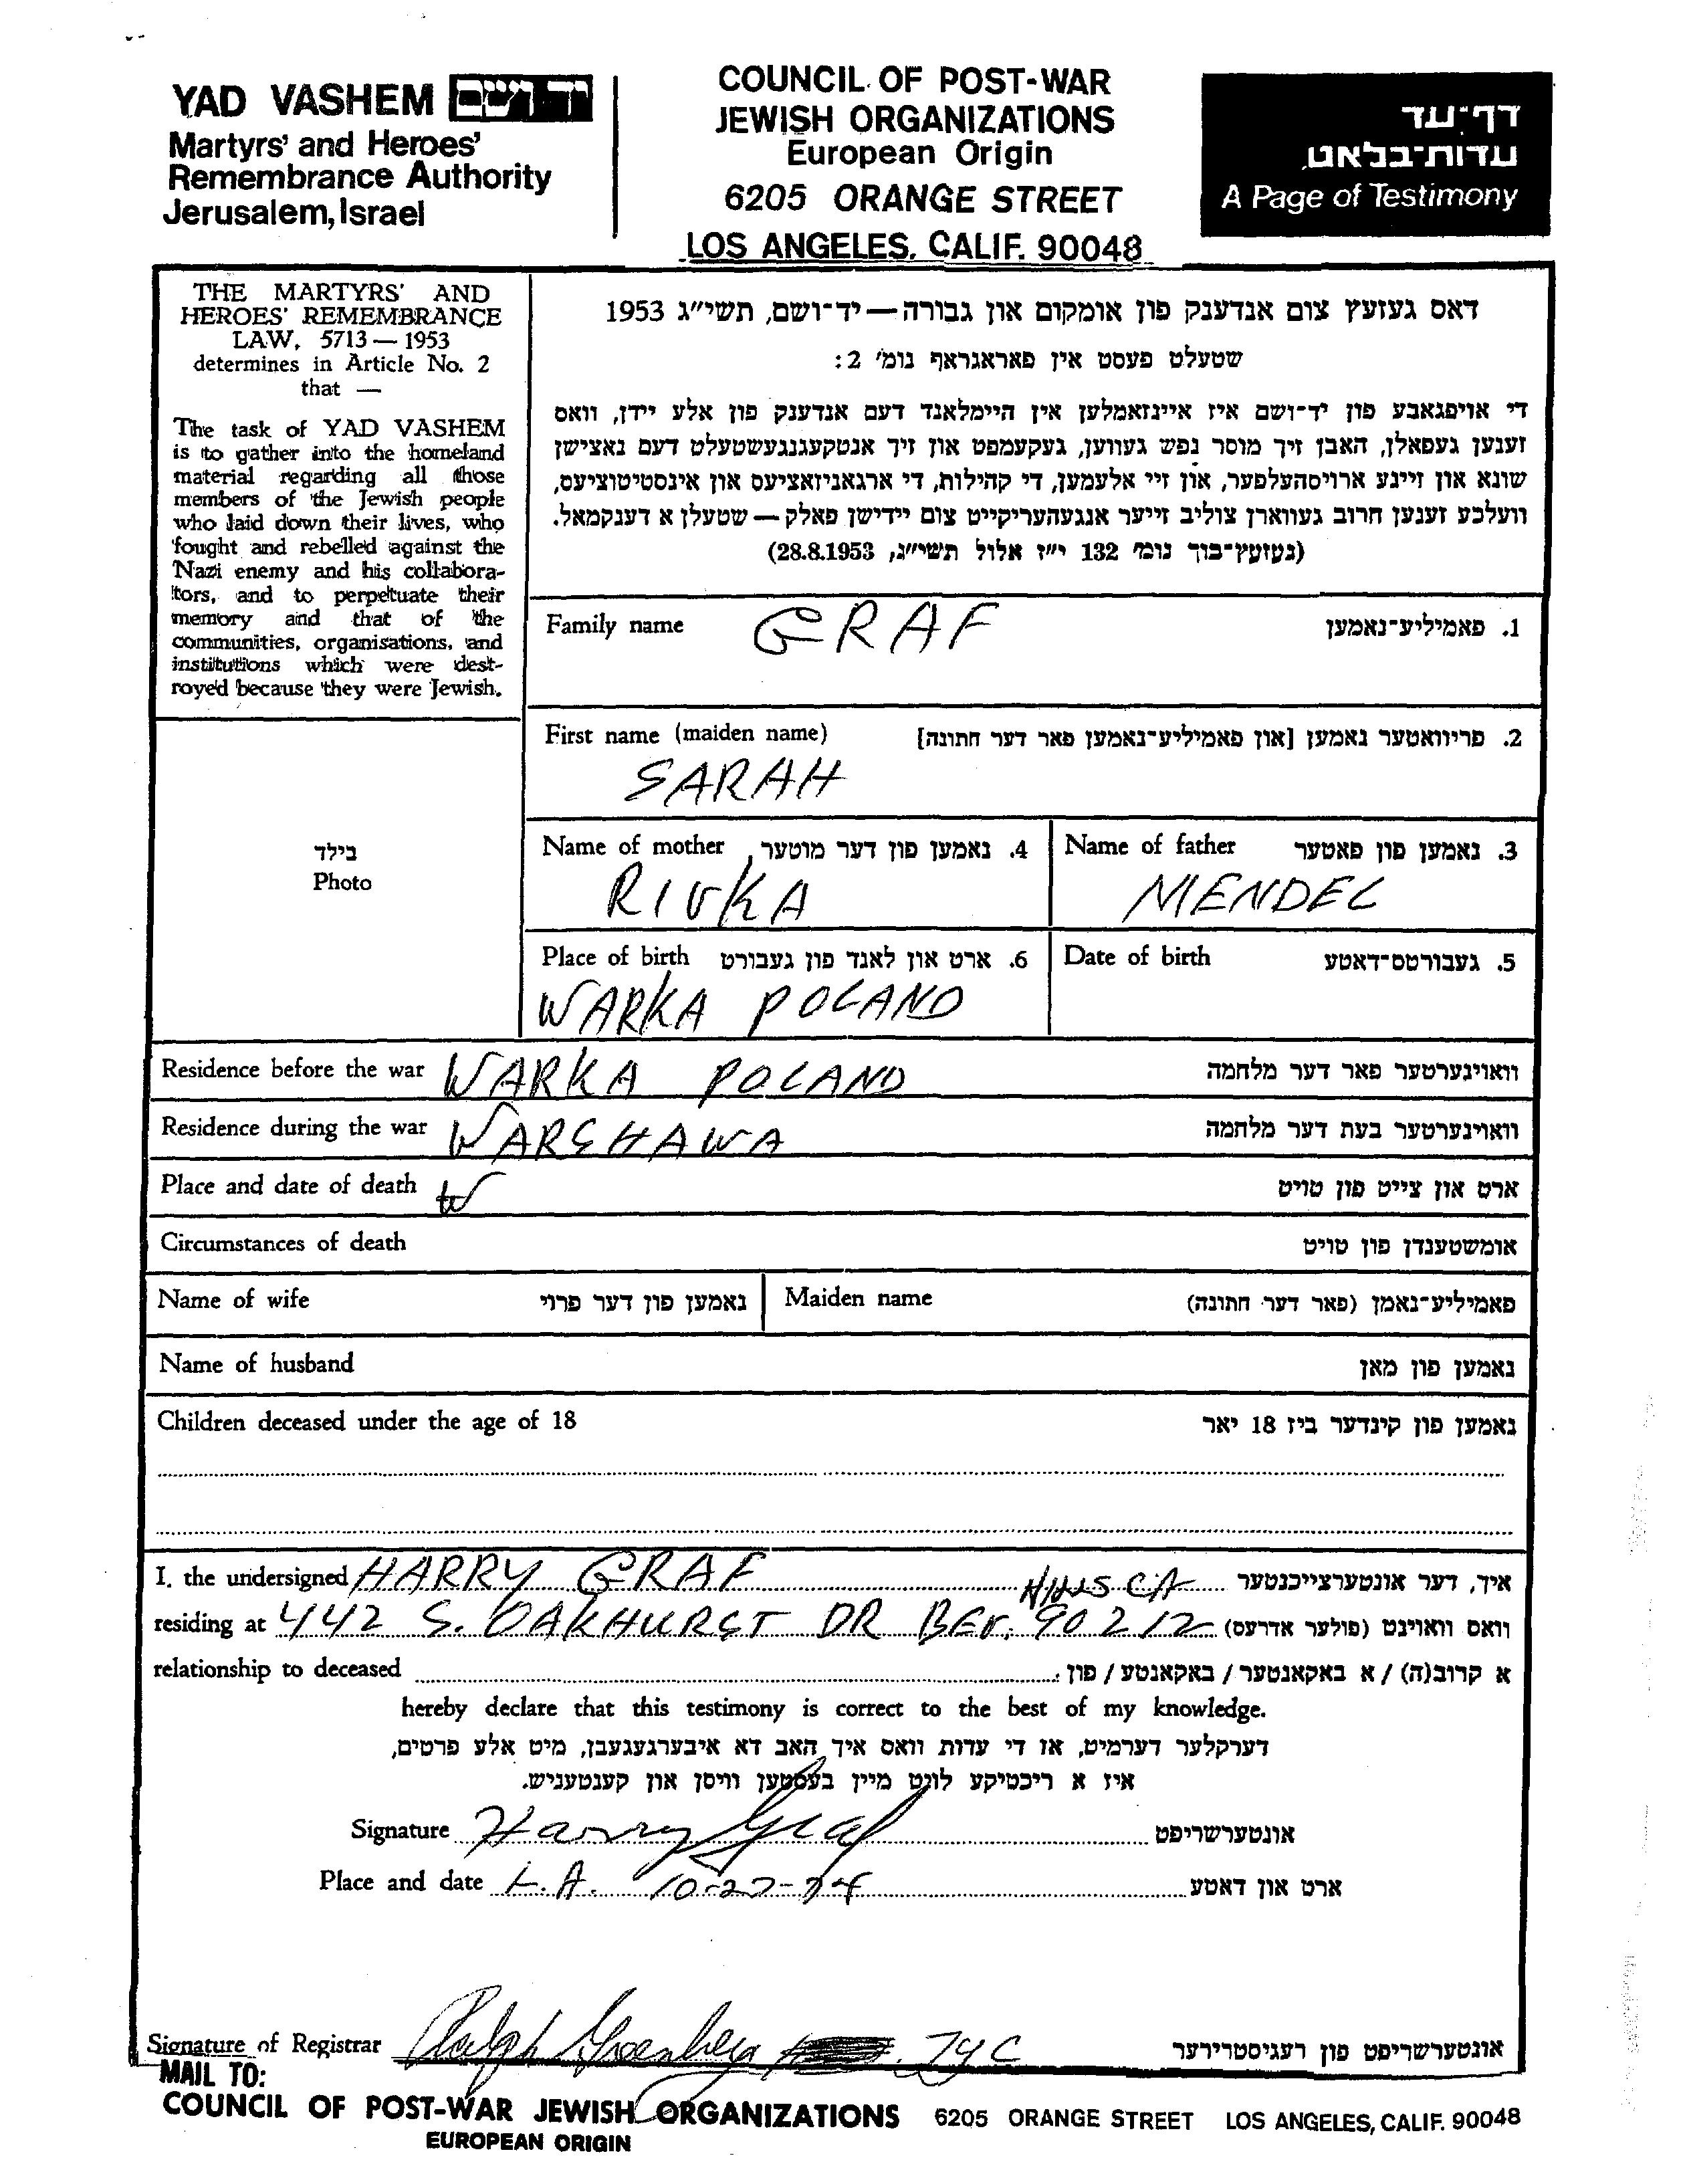 YAD VASHEM יד ושם
Martyrs' and Heroes'
Remembrance Authority
Jerusalem, Israel
COUNCIL OF POST-WAR
JEWISH ORGANIZATIONS
European Origin
6205 ORANGE STREET
LOS ANGELES, CALIF. 90048
דף־עד
עדות־בלאט
A Page of Testimony
THE MARTYRS' AND
HEROES' REMEMBRANCE
LAW, 5713 — 1953
determines in Article No. 2
that —
The task of YAD VASHEM
is to gather into the homeland
material regarding all those
members of the Jewish people
who laid down their lives, who
fought and rebelled against the
Nazi enemy and his collabora-
tors, and to perpetuate their
memory and that of the
communities, organisations, and
institutions which were dest-
royed because they were Jewish.
דאס געזעץ צום אנדענק פון אומקום און גבורה — יד־ושם, תשי״ג 1953
שטעלט פעסט אין פאראגראף נומ׳ 2:
די אויפגאבע פון יד־ושם איז איינזאמלען אין היימלאנד דעם אנדענק פון אלע יידן, וואס
זענען געפאלן, האבן זיך מוסר נפש געווען, געקעמפט און זיך אנטקעגנגעשטעלט דעם נאצישן
שונא און זיינע ארויסהעלפער, און זיי אלעמען, די קהילות, די ארגאניזאציעס און אינסטיטוציעס,
וועלכע זענען חרוב געווארן צוליב זייער אנגעהעריקייט צום יידישן פאלק — שטעלן א דענקמאל.
(געזעץ־בוך נומ׳ 132 י״ז אלול תשי״ג, 28.8.1953)
Family name GRAF 1. פאמיליע־נאמען
First name (maiden name) 2. פריוואטער נאמען [און פאמיליע־נאמען פאר דער חתונה]
SARAH
בילד
Photo
Name of mother 4. נאמען פון דער מוטער
RIVKA
Name of father 3. נאמען פון פאטער
MENDEL
Place of birth 6. ארט און לאנד פון געבורט
WARKA POLAND
Date of birth 5. געבורטס־דאטע
Residence before the war WARKA POLAND וואוינערטער פאר דער מלחמה
Residence during the war WARSHAWA וואוינערטער בעת דער מלחמה
Place and date of death W ארט און צייט פון טויט
Circumstances of death אומשטענדן פון טויט
Name of wife נאמען פון דער פרוי Maiden name פאמיליע־נאמן (פאר דער חתונה)
Name of husband נאמען פון מאן
Children deceased under the age of 18 נאמען פון קינדער ביז 18 יאר
I, the undersigned HARRY GRAF איך, דער אונטערצייכנטער
HILLS CA
residing at 442 S. OAKHURST DR BEV. 90212 וואס וואוינט (פולער אדרעס)
relationship to deceased א קרוב(ה) / א באקאנטער / באקאנטע / פון:
hereby declare that this testimony is correct to the best of my knowledge.
דערקלער דערמיט, אז די עדות וואס איך האב דא איבערגעגעבן, מיט אלע פרטים,
איז א ריכטיקע לויט מיין בעסטען וויסן און קענטעניש.
Signature Harry Graf אונטערשריפט
Place and date L.A. 10-27-74 ארט און דאטע
Signature of Registrar Ralph אונטערשריפט פון רעגיסטרירער
MAIL TO:
COUNCIL OF POST-WAR JEWISH ORGANIZATIONS 6205 ORANGE STREET LOS ANGELES, CALIF. 90048
EUROPEAN ORIGIN